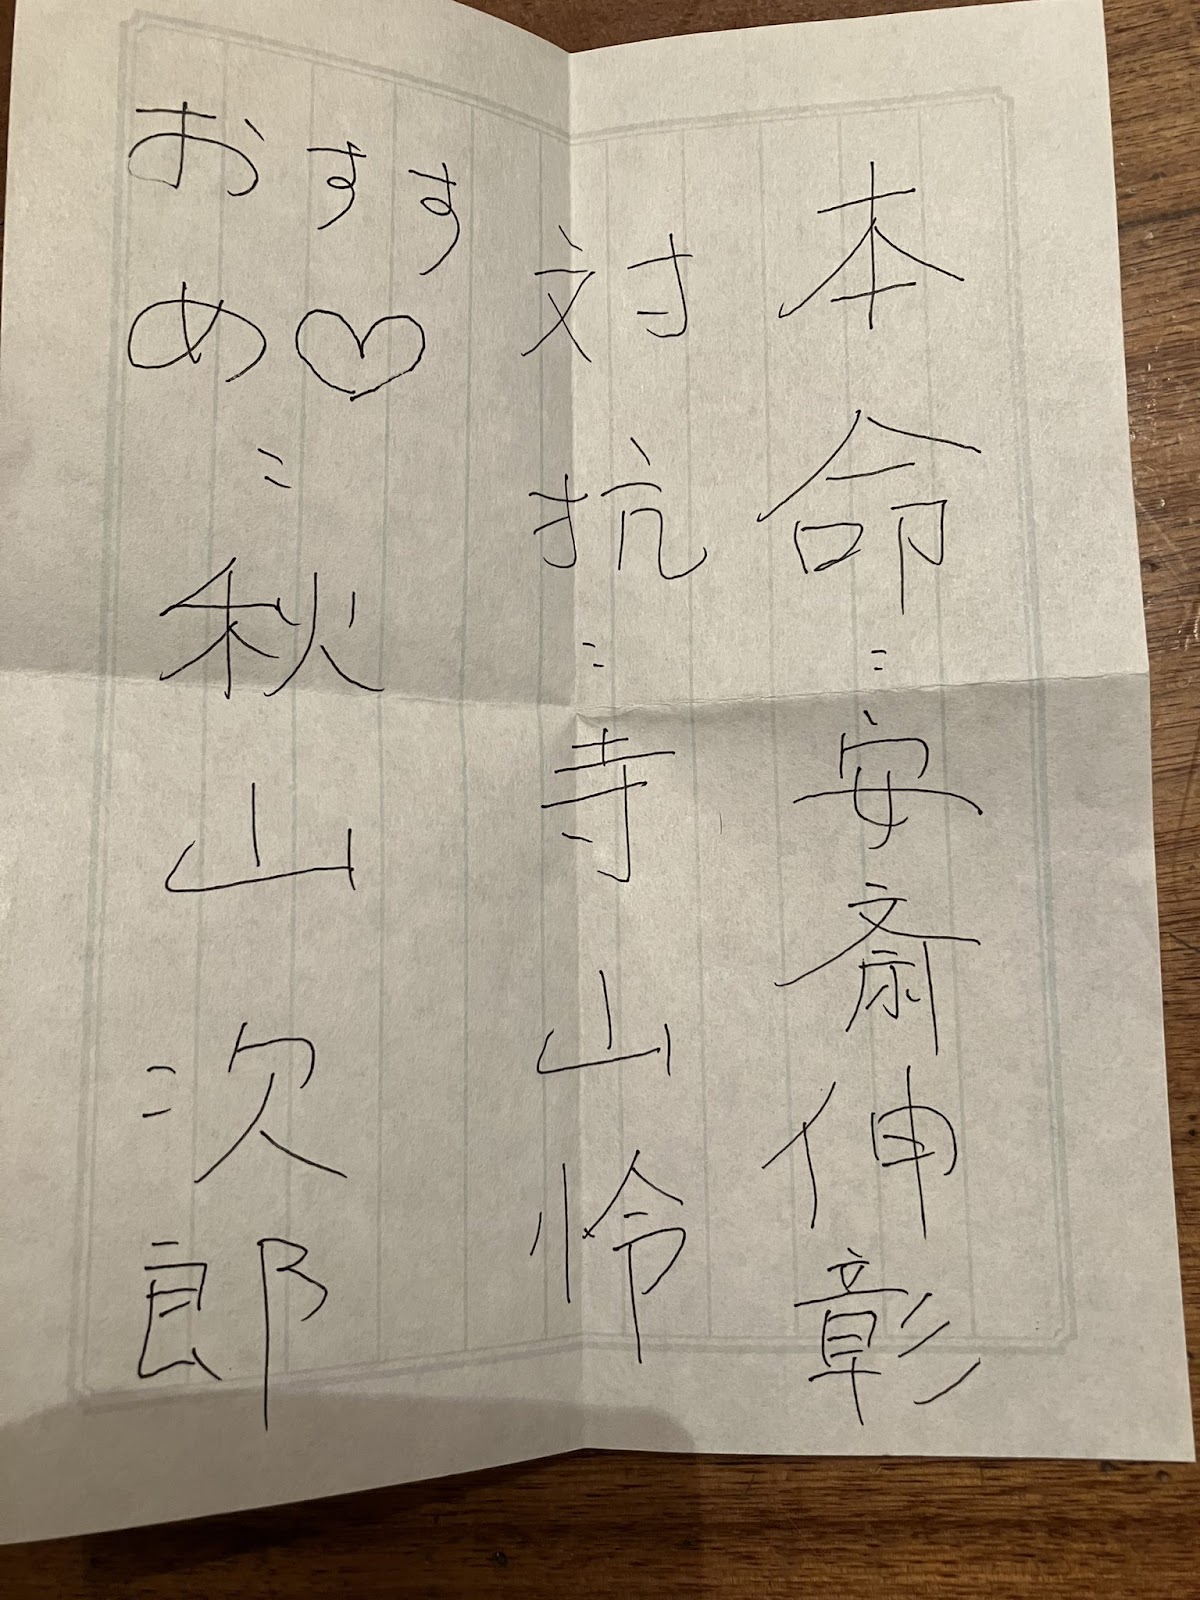 本命：安斎伸彰
対抗：寺山怜
おすすめ♡：秋山次郎